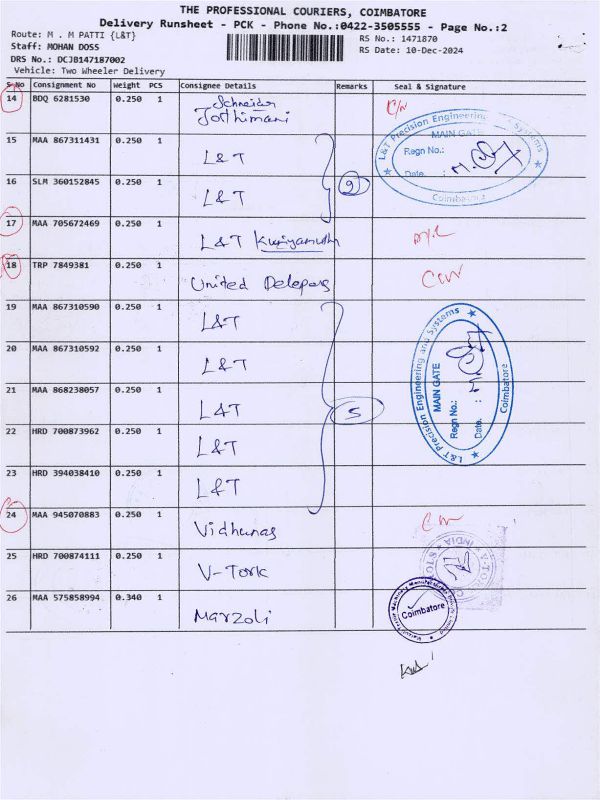 THE PROFESSIONAL COURIERS, COIMBATORE
Delivery Runsheet - PCK - Phone No.:0422-3505555 - Page No.:2
Route: M . M PATTI {L&T}
RS No.: 1471870
Staff: MOHAN DOSS
RS Date: 10-Dec-2024
DRS No.: DCJB147187002
Vehicle: Two Wheeler Delivery
S No Consignment No Weight PCS Consignee Details Remarks Seal & Signature
14 BDQ 6281530 0.250 1 Schneider
Jothimani
15 MAA 867311431 0.250 1 L&T
16 SLM 360152845 0.250 1 L&T 2
17 MAA 705672469 0.250 1 L&T
18 TRP 7849381 0.250 1 United
19 MAA 867310590 0.250 1 L&T
20 MAA 867310592 0.250 1 L&T
21 MAA 868238057 0.250 1 L&T 5
22 HRD 700873962 0.250 1 L&T
23 HRD 394038410 0.250 1 L&T
24 MAA 945070883 0.250 1
25 HRD 700874111 0.250 1 V-Tork
26 MAA 575858994 0.340 1 Marzoli
L&T Precision Engineering and Systems
MAIN GATE
Regn No.:
Date. :
Coimbatore
L&T Precision Engineering and Systems
MAIN GATE
Regn No.:
Date. :
Coimbatore
INDIA
Coimbatore